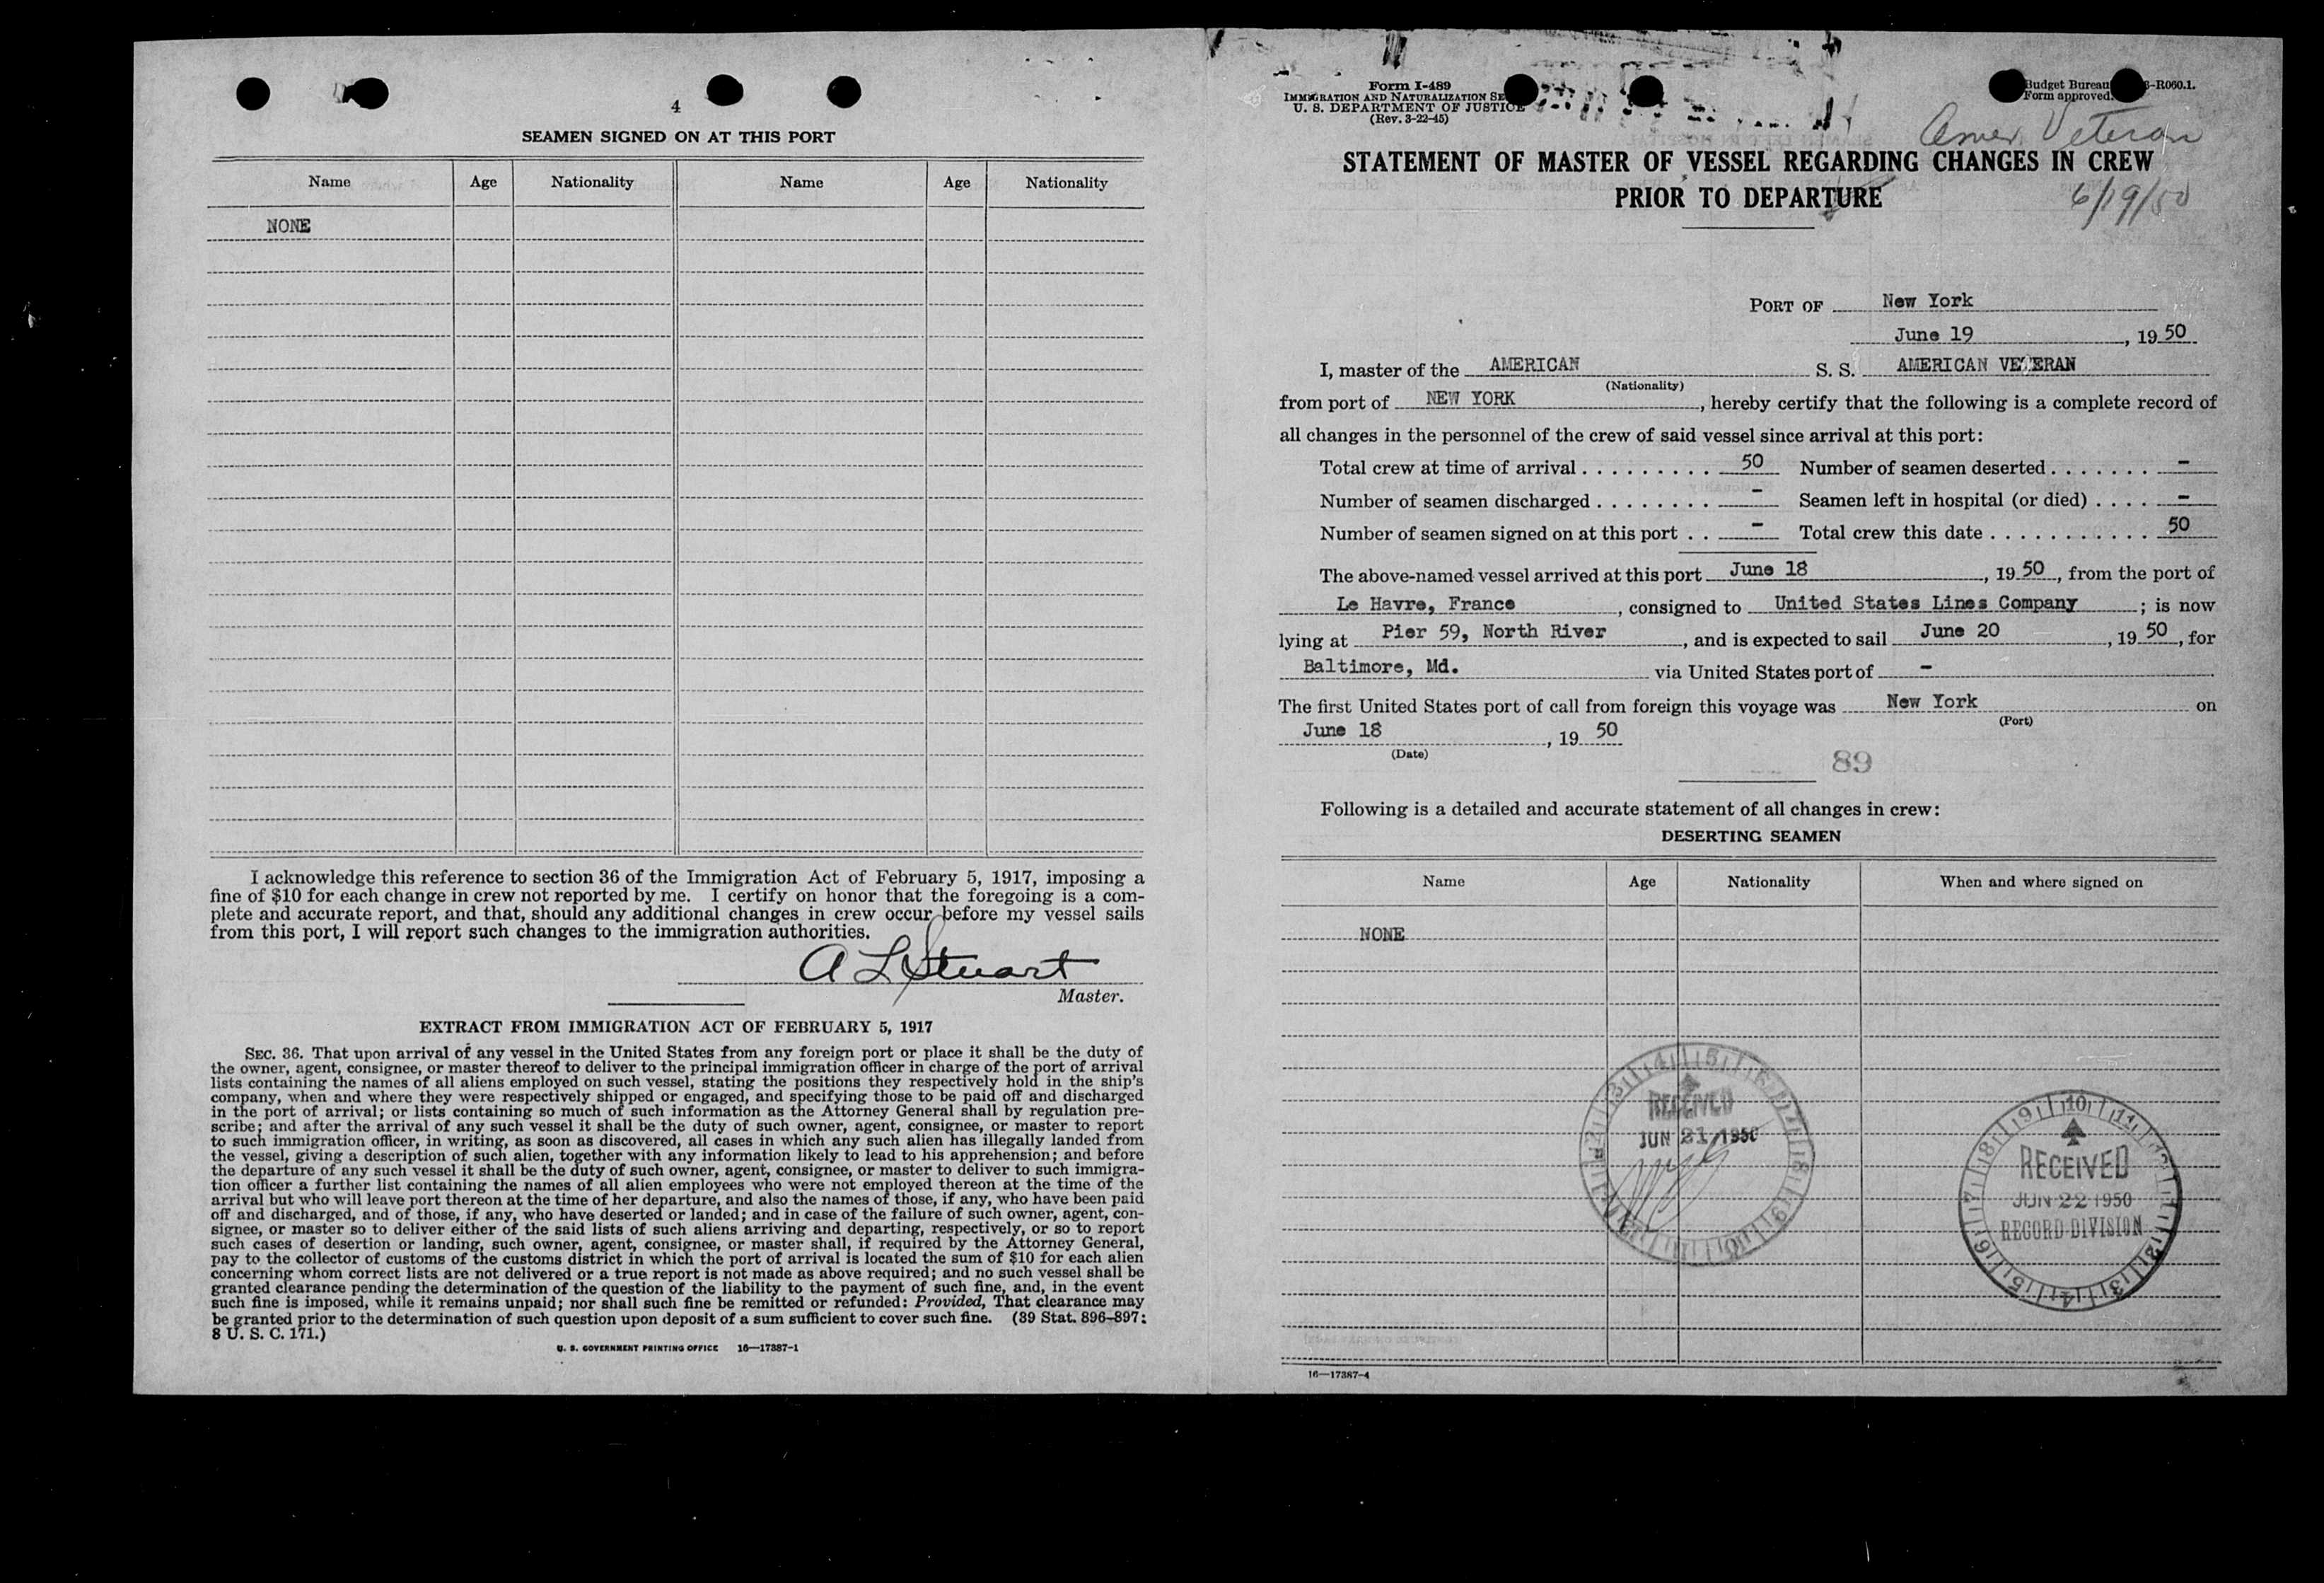 4
SEAMEN SIGNED ON AT THIS PORT
Name Age Nationality Name Age Nationality
NONE
I acknowledge this reference to section 36 of the Immigration Act of February 5, 1917, imposing a
fine of $10 for each change in crew not reported by me. I certify on honor that the foregoing is a com-
plete and accurate report, and that, should any additional changes in crew occur before my vessel sails
from this port, I will report such changes to the immigration authorities.
A L Stuart
Master.
EXTRACT FROM IMMIGRATION ACT OF FEBRUARY 5, 1917
SEC. 36. That upon arrival of any vessel in the United States from any foreign port or place it shall be the duty of
the owner, agent, consignee, or master thereof to deliver to the principal immigration officer in charge of the port of arrival
lists containing the names of all aliens employed on such vessel, stating the positions they respectively hold in the ship's
company, when and where they were respectively shipped or engaged, and specifying those to be paid off and discharged
in the port of arrival; or lists containing so much of such information as the Attorney General shall by regulation pre-
scribe; and after the arrival of any such vessel it shall be the duty of such owner, agent, consignee, or master to report
to such immigration officer, in writing, as soon as discovered, all cases in which any such alien has illegally landed from
the vessel, giving a description of such alien, together with any information likely to lead to his apprehension; and before
the departure of any such vessel it shall be the duty of such owner, agent, consignee, or master to deliver to such immigra-
tion officer a further list containing the names of all alien employees who were not employed thereon at the time of the
arrival but who will leave port thereon at the time of her departure, and also the names of those, if any, who have been paid
off and discharged, and of those, if any, who have deserted or landed; and in case of the failure of such owner, agent, con-
signee, or master so to deliver either of the said lists of such aliens arriving and departing, respectively, or so to report
such cases of desertion or landing, such owner, agent, consignee, or master shall, if required by the Attorney General,
pay to the collector of customs of the customs district in which the port of arrival is located the sum of $10 for each alien
concerning whom correct lists are not delivered or a true report is not made as above required; and no such vessel shall be
granted clearance pending the determination of the question of the liability to the payment of such fine, and, in the event
such fine is imposed, while it remains unpaid; nor shall such fine be remitted or refunded: Provided, That clearance may
be granted prior to the determination of such question upon deposit of a sum sufficient to cover such fine. (39 Stat. 896–897;
8 U. S. C. 171.)
U. S. GOVERNMENT PRINTING OFFICE 16—17387-1
Form I-489
IMMIGRATION AND NATURALIZATION
U. S. DEPARTMENT OF JUSTICE
(Rev. 3-22-45)
Budget Bureau -R060.1.
Form approved.
Amer Veteran
STATEMENT OF MASTER OF VESSEL REGARDING CHANGES IN CREW
PRIOR TO DEPARTURE
6/19/50
PORT OF New York
June 19, 1950
I, master of the AMERICAN S. S. AMERICAN VETERAN
(Nationality)
from port of NEW YORK, hereby certify that the following is a complete record of
all changes in the personnel of the crew of said vessel since arrival at this port:
Total crew at time of arrival . . . . . . . . . 50 Number of seamen deserted . . . . . . . -
Number of seamen discharged . . . . . . . . - Seamen left in hospital (or died) . . . . -
Number of seamen signed on at this port . . - Total crew this date . . . . . . . . . . . 50
The above-named vessel arrived at this port June 18, 1950, from the port of
Le Havre, France, consigned to United States Lines Company; is now
lying at Pier 59, North River, and is expected to sail June 20, 1950, for
Baltimore, Md. via United States port of -
The first United States port of call from foreign this voyage was New York on
(Port)
June 18, 1950
(Date)
89
Following is a detailed and accurate statement of all changes in crew:
DESERTING SEAMEN
Name Age Nationality When and where signed on
NONE
RECEIVED
JUN 21 1950
RECEIVED
JUN 22 1950
RECORD DIVISION
16—17387-4